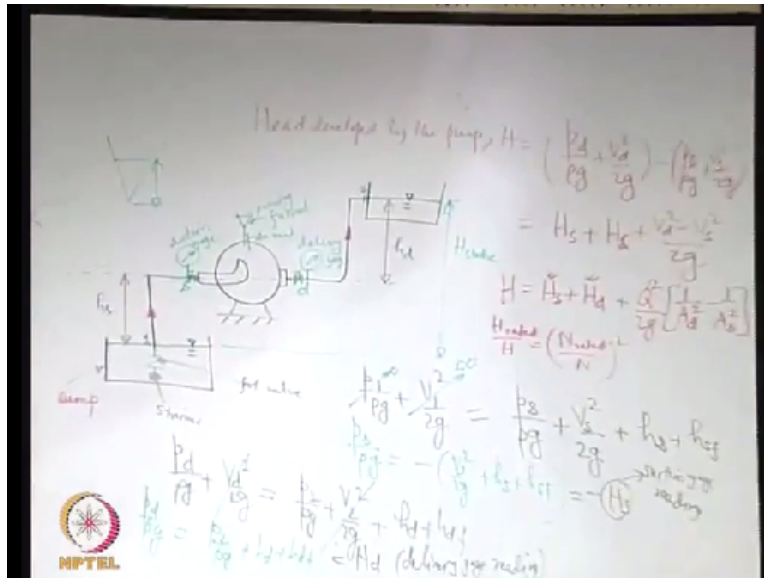 Head developed by the pump, H = (Pd/ρg + Vd²/2g) - (Ps/ρg + Vs²/2g)
= Hs + Hd + Vd² - Vs²/2g
H = Hs + Hd + Q²/2g [1/Ad² - 1/As²]
H rated/H = (N rated/N)²
priming
funnel
suction
gauge
delivery
gauge
s
d
hd
H static
hs
1
2
Sump
foot valve
Strainer
P1/ρg + V1²/2g = Ps/ρg + Vs²/2g + hs + hfs
Ps/ρg = -(Vs²/2g + hs + hfs) = -Hs
suction gauge
reading
Pd/ρg + Vd²/2g = P2/ρg + V2²/2g + hd + hfd
Pd/ρg =
= Hd (delivery gauge reading)
NPTEL